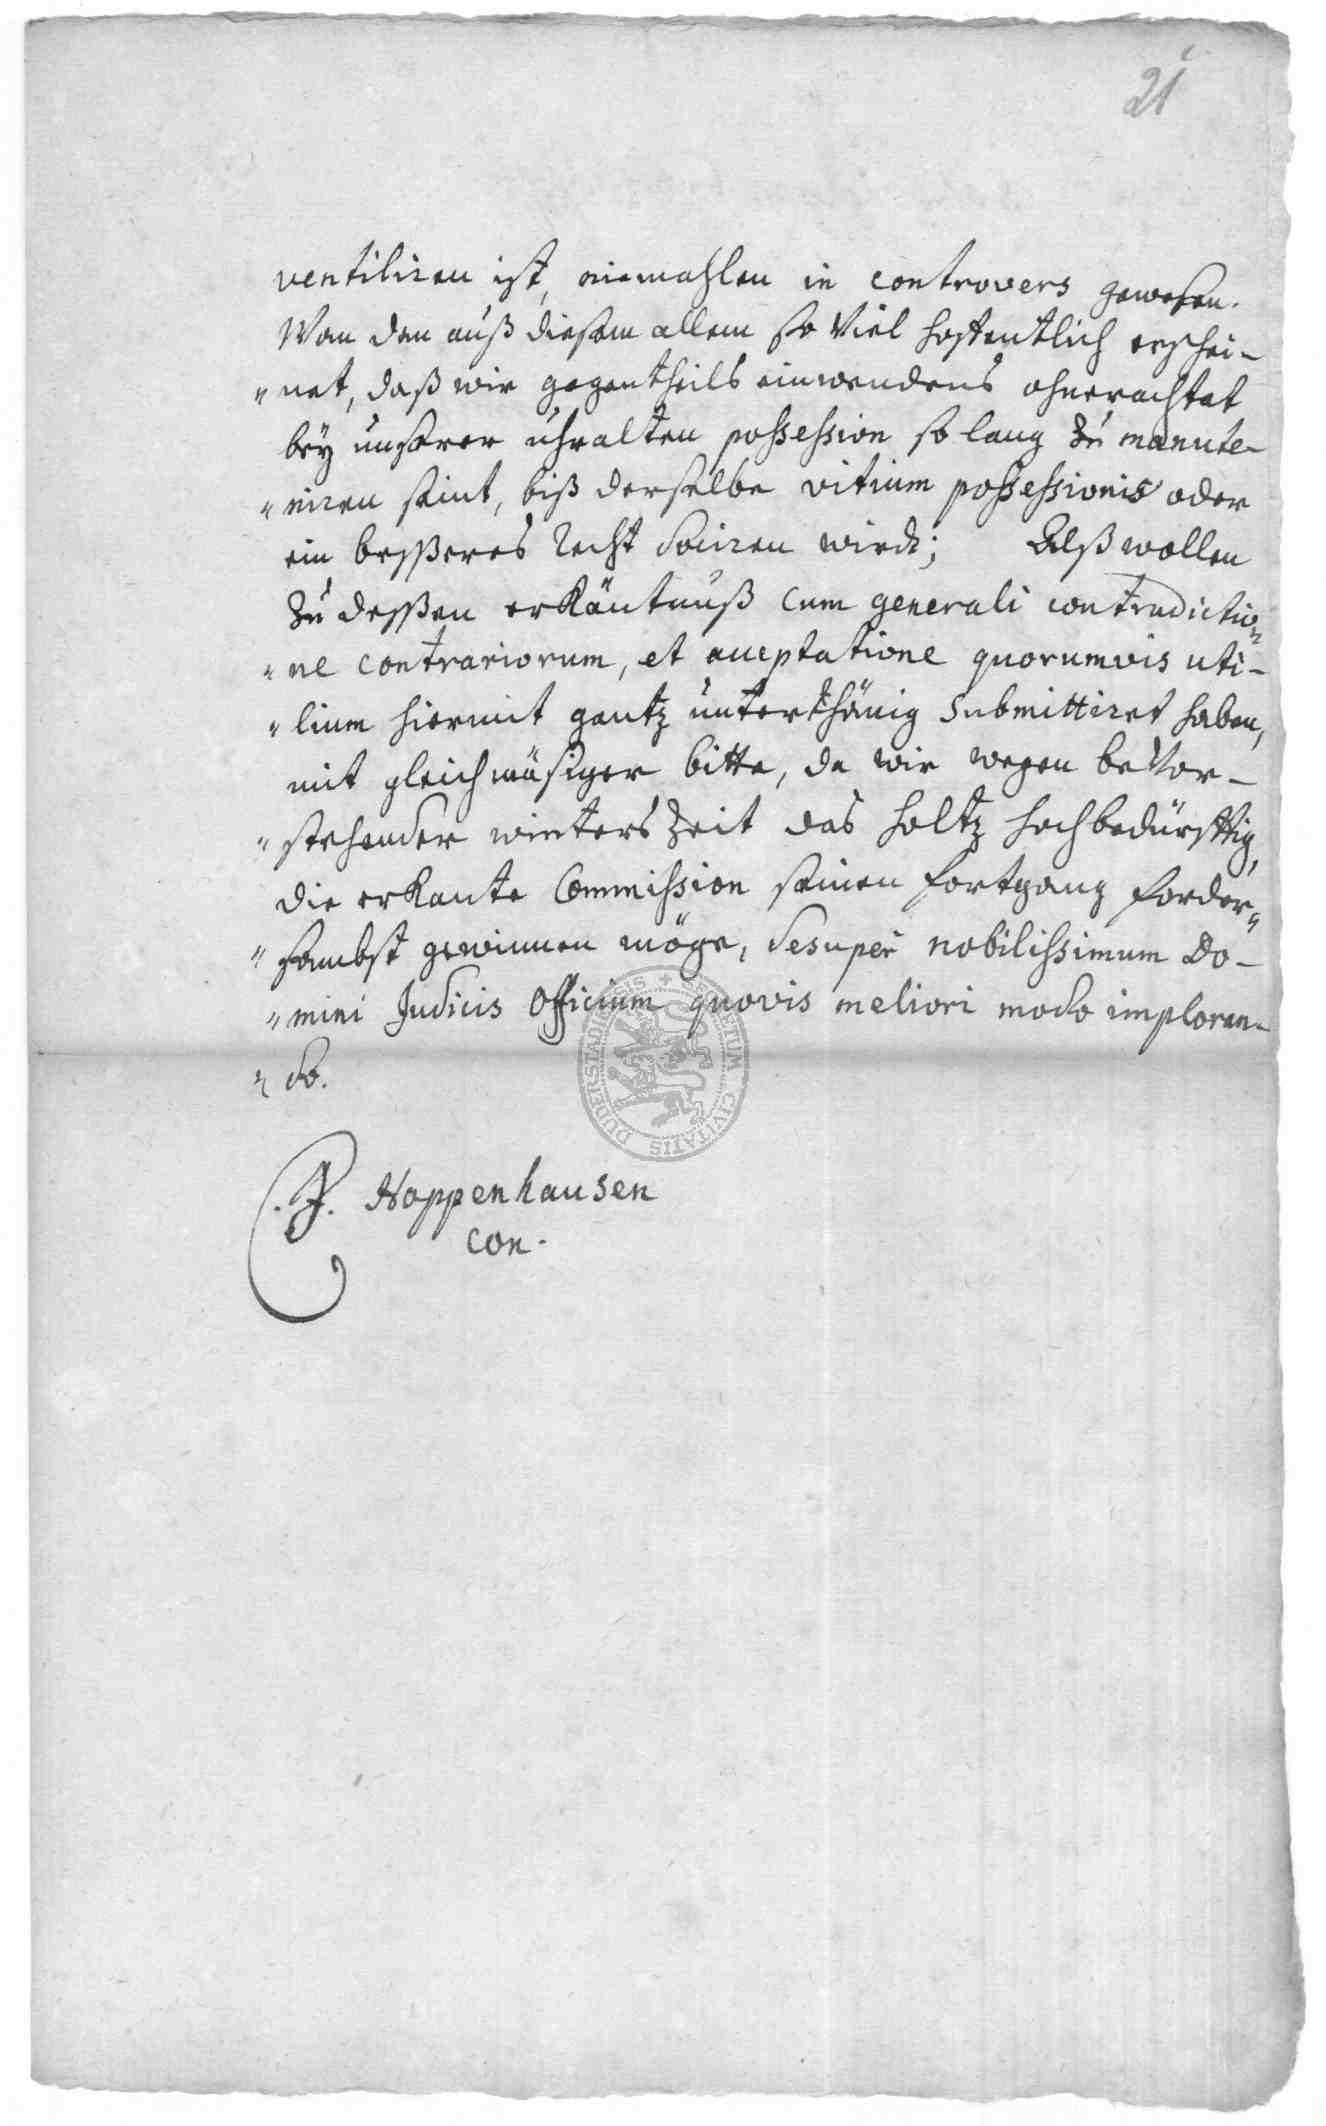 21
ventiliren ist, niemahlen in controvers gewesen.
Wan dan auß diesem allem so viel hoffentlich erschei-
net, daß wir gegentheils einwendens ohnerachtet
bey unserer uhralten possession so lang zu manute-
niren seint, biß derselbe vitium possessionis oder
ein besseres recht dociren wird; Alß wollen
zu dessen erkäntnuß cum generali contradictio-
ne contrariorum, et acceptatione quorumvis uti-
lium hiermit gantz unterthänig submittiret haben,
mit gleichmäsiger bitte, da wir wegen bevor-
stehender winters Zeit das holtz hochbedürfftig,
die erkante Commission seinen fortgang forder-
sambst gewinnen möge, desuper nobilissimum Do-
mini Judicis officium quovis meliori modo imploran-
do.
J. Hoppenhausen
con.
SIGILLUM CIVITATIS DUDERSTADIENSIS